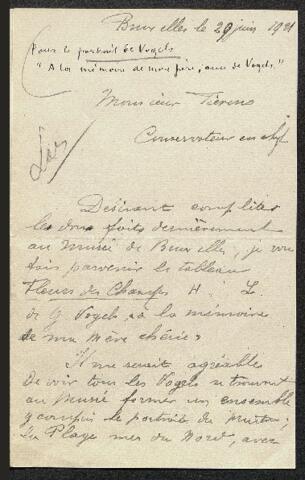 Bruxelles le 20 juin 1921
Pour le portrait de Vogels
"A la mémoire de mon père, ami de Vogels"
Monsieur Fierens
Conservateur en chef
Désirant compléter
les dons faits dernièrement
au Musée de Bruxelles, je vous
fais parvenir le tableau
Fleurs des Champs H L
de G Vogels, à la mémoire
de ma Mère chérie.
Il me serait agréable
de voir tous les Vogels se trouvant
au Musée former un ensemble
y compris le portrait du peintre;
La Plage mer du Nord, avec